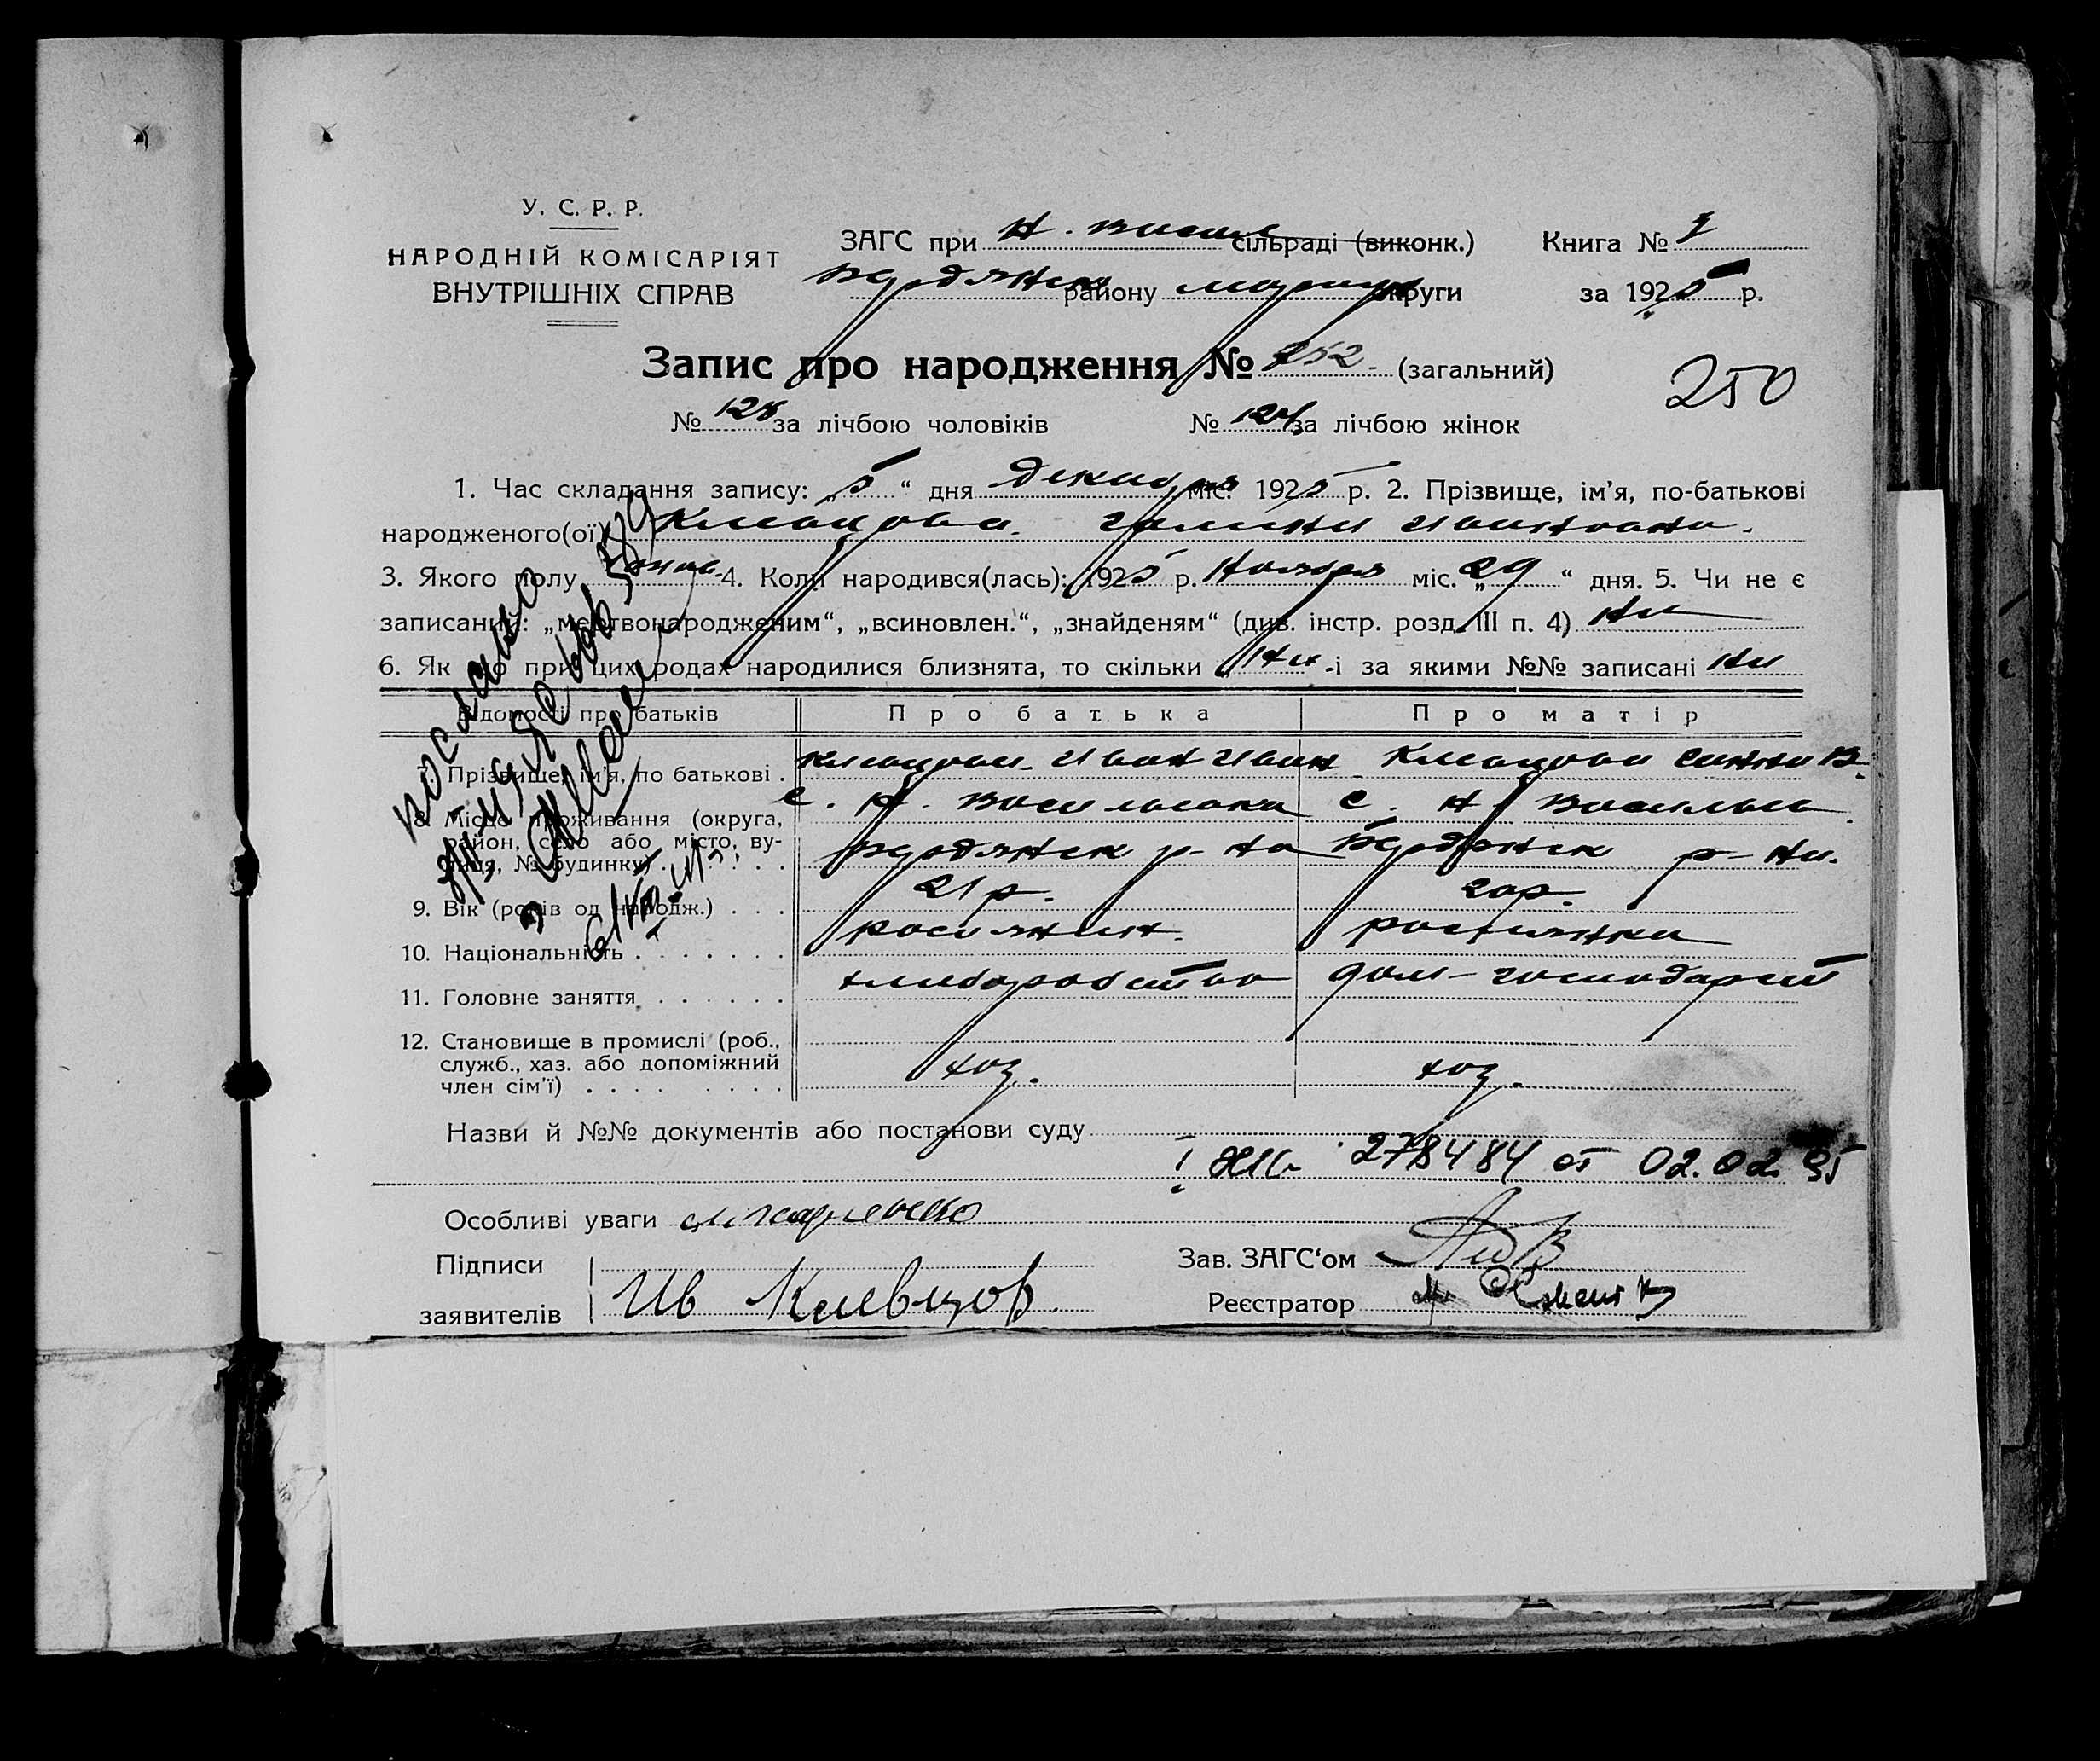 У. С. Р. Р.
НАРОДНІЙ КОМІСАРІЯТ
ВНУТРІШНІХ СПРАВ
ЗАГС при Н. Васил сільраді (виконк.)
Бердянск району Мариуп округи
Книга №
за 1925 р.
Запис про народження № 252 (загальний)
250
№ 128 за лічбою чоловіків № 124 за лічбою жінок
1. Час складання запису: „5“ дня декабря міс. 1925 р. 2. Прізвище, ім'я, по-батькові
народженого(ої) Клевцова Галина Ивановна
3. Якого полу жінов. 4. Коли народився(лась): 1925 р. Ноября міс. „29“ дня. 5. Чи не є
записаний: „мертвонародженим“, „всиновлен.“, „знайденям“ (див. інстр. розд. III п. 4) ни
6. Як що при цих родах народилися близнята, то скільки ни і за якими №№ записані ни
Відомості про батьків Про батька Про матір
7. Прізвище, ім'я, по батькові . Клевцов Иван Иван Клевцова Ганна В.
8. Місце проживання (округа, район, село або місто, вулиця, № будинку) с. Н. Васильевка с. Н. Василье
Бердянск р-на Бердянск р-на
9. Вік (років од народж.) . . . 21 р. 20 р.
10. Національність . . . . . . . росиянин росиянка
11. Головне заняття . . . . . . хлиборобство дом-господарст
12. Становище в промислі (роб.,
служб., хаз. або допоміжний
член сім'ї) . . . . . . . . хоз. хоз.
Назви й №№ документів або постанови суду
278484 от 02.02.95
Особливі уваги
Підписи
заявителів Ив Клевцов
Зав. ЗАГС'ом
Реєстратор
послано